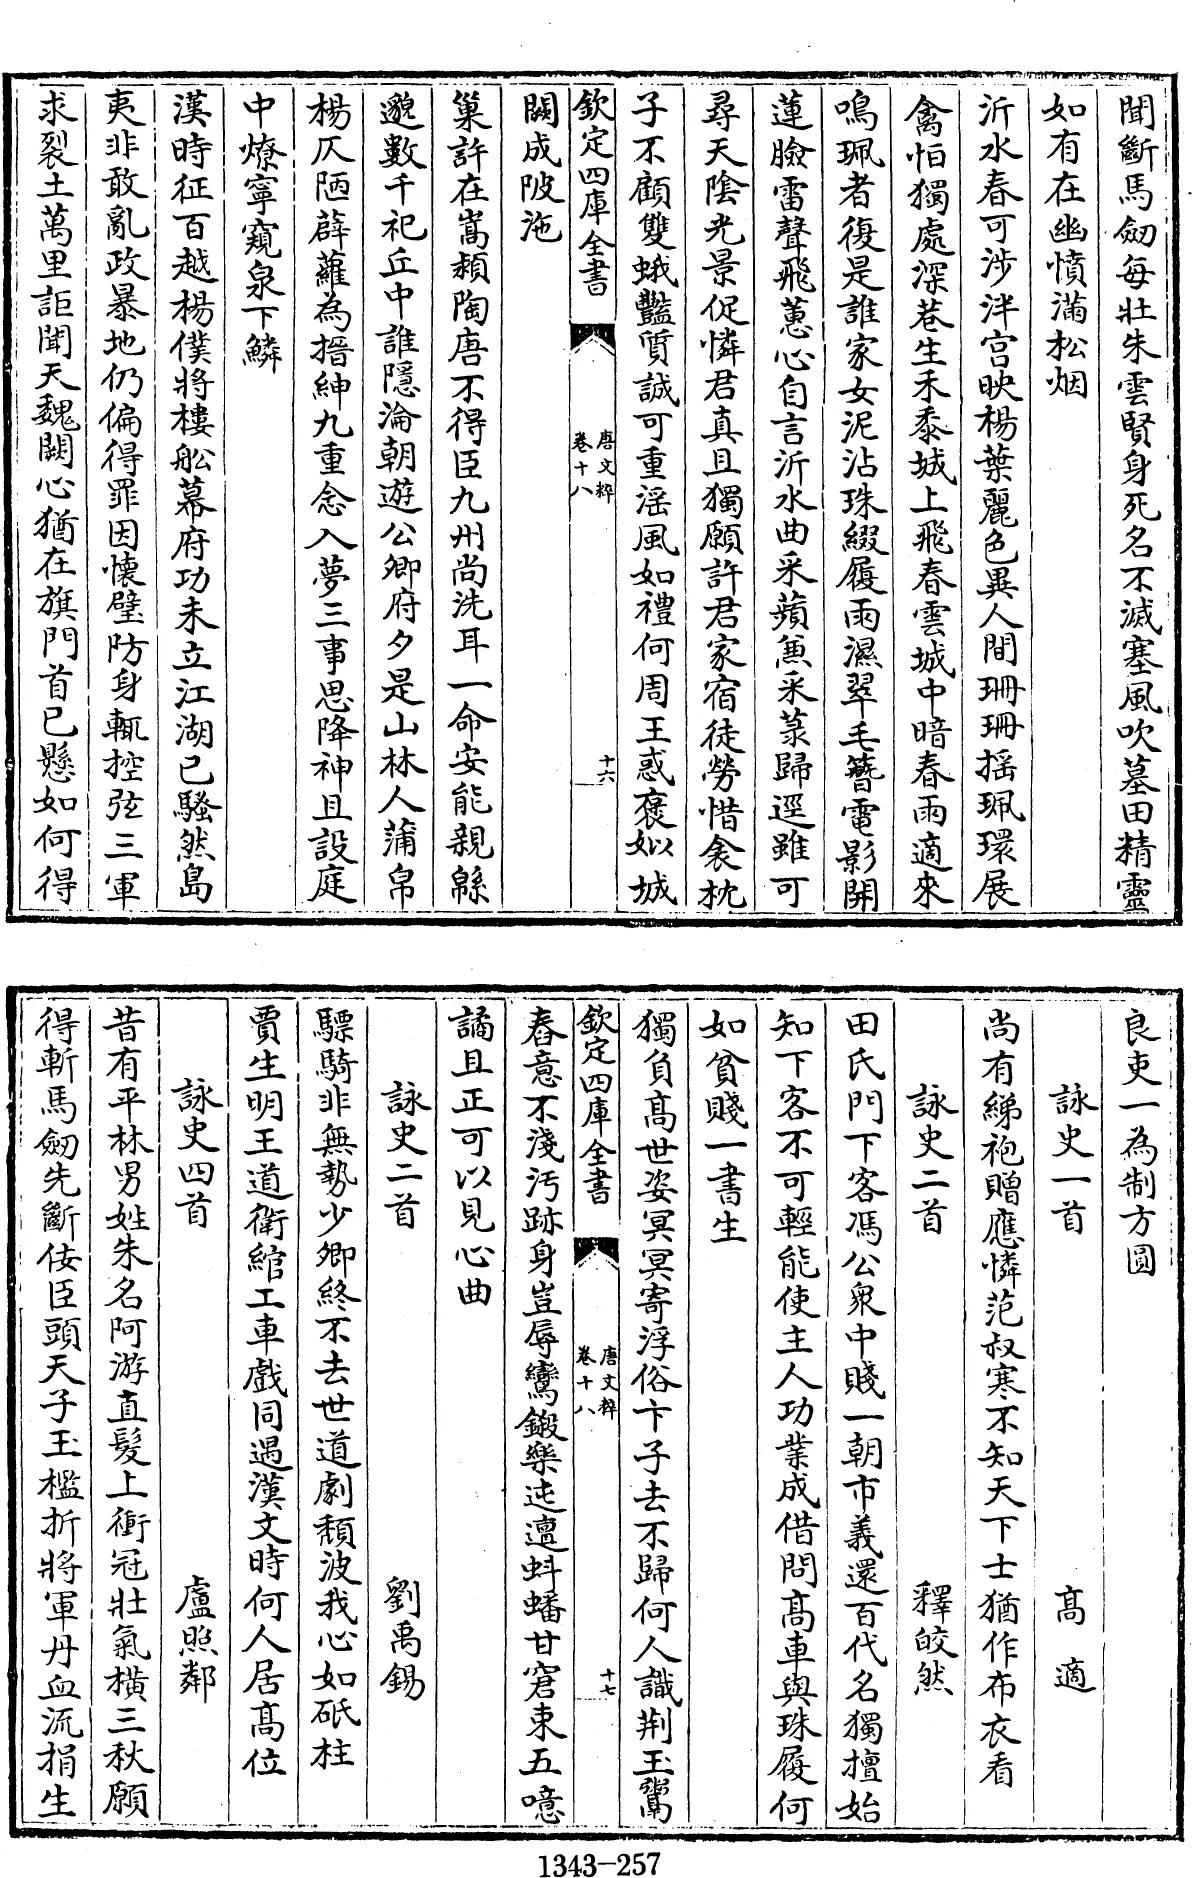 聞斷馬劒每壯朱雲賢身死名不滅塞風吹墓田精靈
如有在幽憤滿松烟
沂水春可涉泮宫映楊葉麗色異人間珊珊揺珮環展
禽怕獨處深巷生禾黍城上飛春雲城中暗春雨適來
鳴珮者復是誰家女泥沾珠綴履雨濕翠毛簪電影開
蓮臉雷聲飛蕙心自言沂水曲采蘋兼采菉歸逕雖可
尋天陰光景促憐君真且獨願許君家宿徒勞惜衾枕
子不顧雙蛾豔質誠可重淫風如禮何周王惑褒姒城
欽定四庫全書
唐文粹
卷十八
十六
闕成陂沲
巢許在嵩潁陶唐不得臣九州尚洗耳一命安能親緜
邈數千祀丘中誰隱淪朝遊公卿府夕是山林人蒲帛
楊仄陋薜蘿為搢紳九重念入夢三事思降神且設庭
中燎寧窺泉下鱗
漢時征百越楊僕將樓舩幕府功未立江湖已騷然島
夷非敢亂政暴地仍偏得罪因懐璧防身輒控弦三軍
求裂土萬里詎聞天魏闕心猶在旗門首已懸如何得
良吏一為制方圓
詠史一首 髙適
尚有綈袍贈應憐范叔寒不知天下士猶作布衣看
詠史二首 釋皎然
田氏門下客馮公衆中賤一朝市義還百代名獨擅始
知下客不可輕能使主人功業成借問髙車與珠履何
如貧賤一書生
獨負髙世姿冥冥寄浮俗卞子去不歸何人識荆玉鬻
欽定四庫全書
唐文粹
卷十八
十七
舂意不淺汚跡身豈辱鸞鎩樂迍邅蚪蟠甘窘束五噫
譎且正可以見心曲
詠史二首 劉禹錫
驃騎非無勢少卿終不去世道劇頽波我心如砥柱
賈生明王道衛綰工車戲同遇漢文時何人居髙位
詠史四首 盧照鄰
昔有平林男姓朱名阿游直髮上衝冠壯氣横三秋願
得斬馬劒先斷佞臣頭天子玉檻折將軍丹血流捐生
1343-257